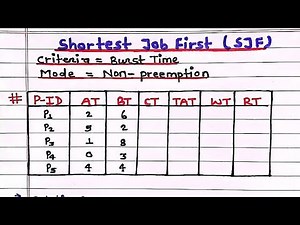 Shortest Job First (SJF)
Criteria = Burst Time
Mode = Non-preemption
# P-ID AT BT CT TAT WT RT
P1 2 6
P2 5 2
P3 1 8
P4 0 3
P5 4 4